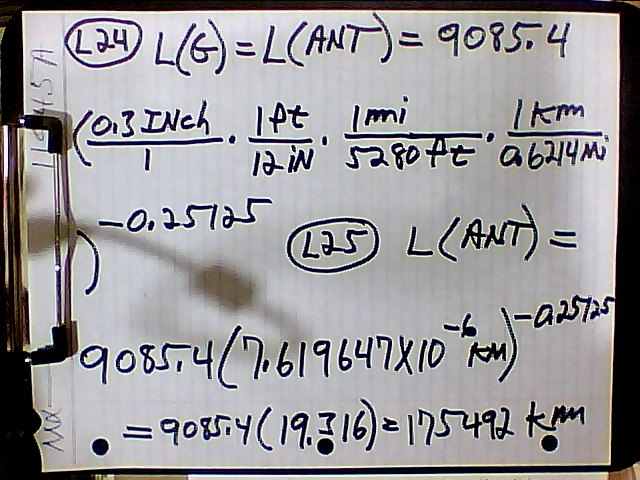 L24 L(G) = L(ANT) = 9085.4
(0.3 INch/1 · 1ft/12iN · 1mi/5280ft · 1km/0.6214Mi
)^-0.25125 L25 L(ANT) =
9085.4(7.619647X10^-6 KM)^-0.25125
= 9085.4(19.316) = 175492 km